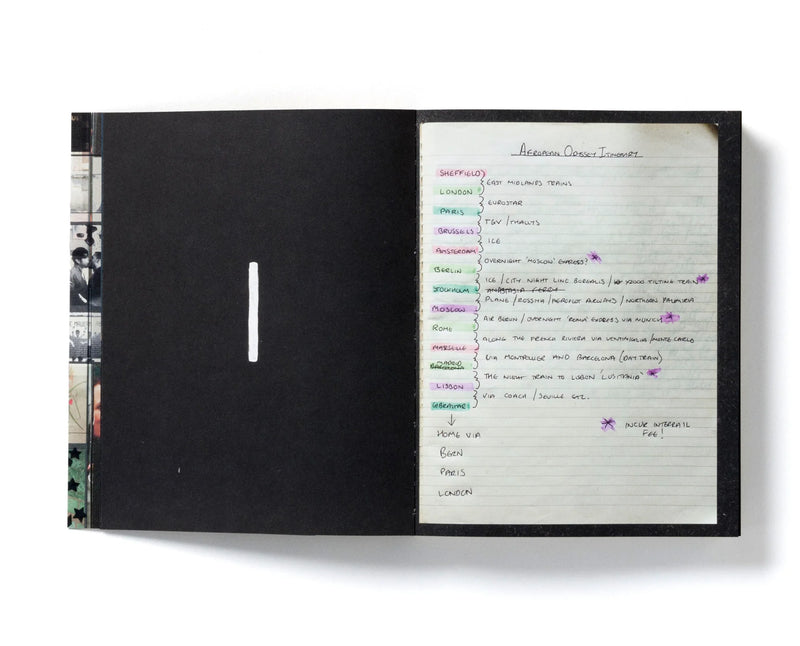 AFROPEAN ODYSSEY ITINERARY
SHEFFIELD
EAST MIDLANDS TRAINS
LONDON
EUROSTAR
PARIS
TGV / THALLYS
BRUSSELS
ICE
AMSTERDAM
OVERNIGHT 'MOSCOW' EXPRESS?
BERLIN
ICE / CITY NIGHT LINE BOREALIS / X2000 TILTING TRAIN
STOCKHOLM
ANASTASIA FERRY
PLANE / ROSSIYA / AEROFLOT AIRLINES / NORTHERN PALMYRA
MOSCOW
AIR BERLIN / OVERNIGHT 'ROMA' EXPRESS VIA MUNICH
ROME
ALONG THE FRENCH RIVIERA VIA VENTIMIGLIA / MONTE CARLO
MARSEILLE
VIA MONTPELLIER AND BARCELONA (DAY TRAIN)
MADRID
BARCELONA
THE NIGHT TRAIN TO LISBON 'LUSITANIA'
LISBON
VIA COACH / SEVILLE ETC.
GIBRALTAR
HOME VIA
BERN
PARIS
LONDON
INCUR INTERRAIL
FEE!